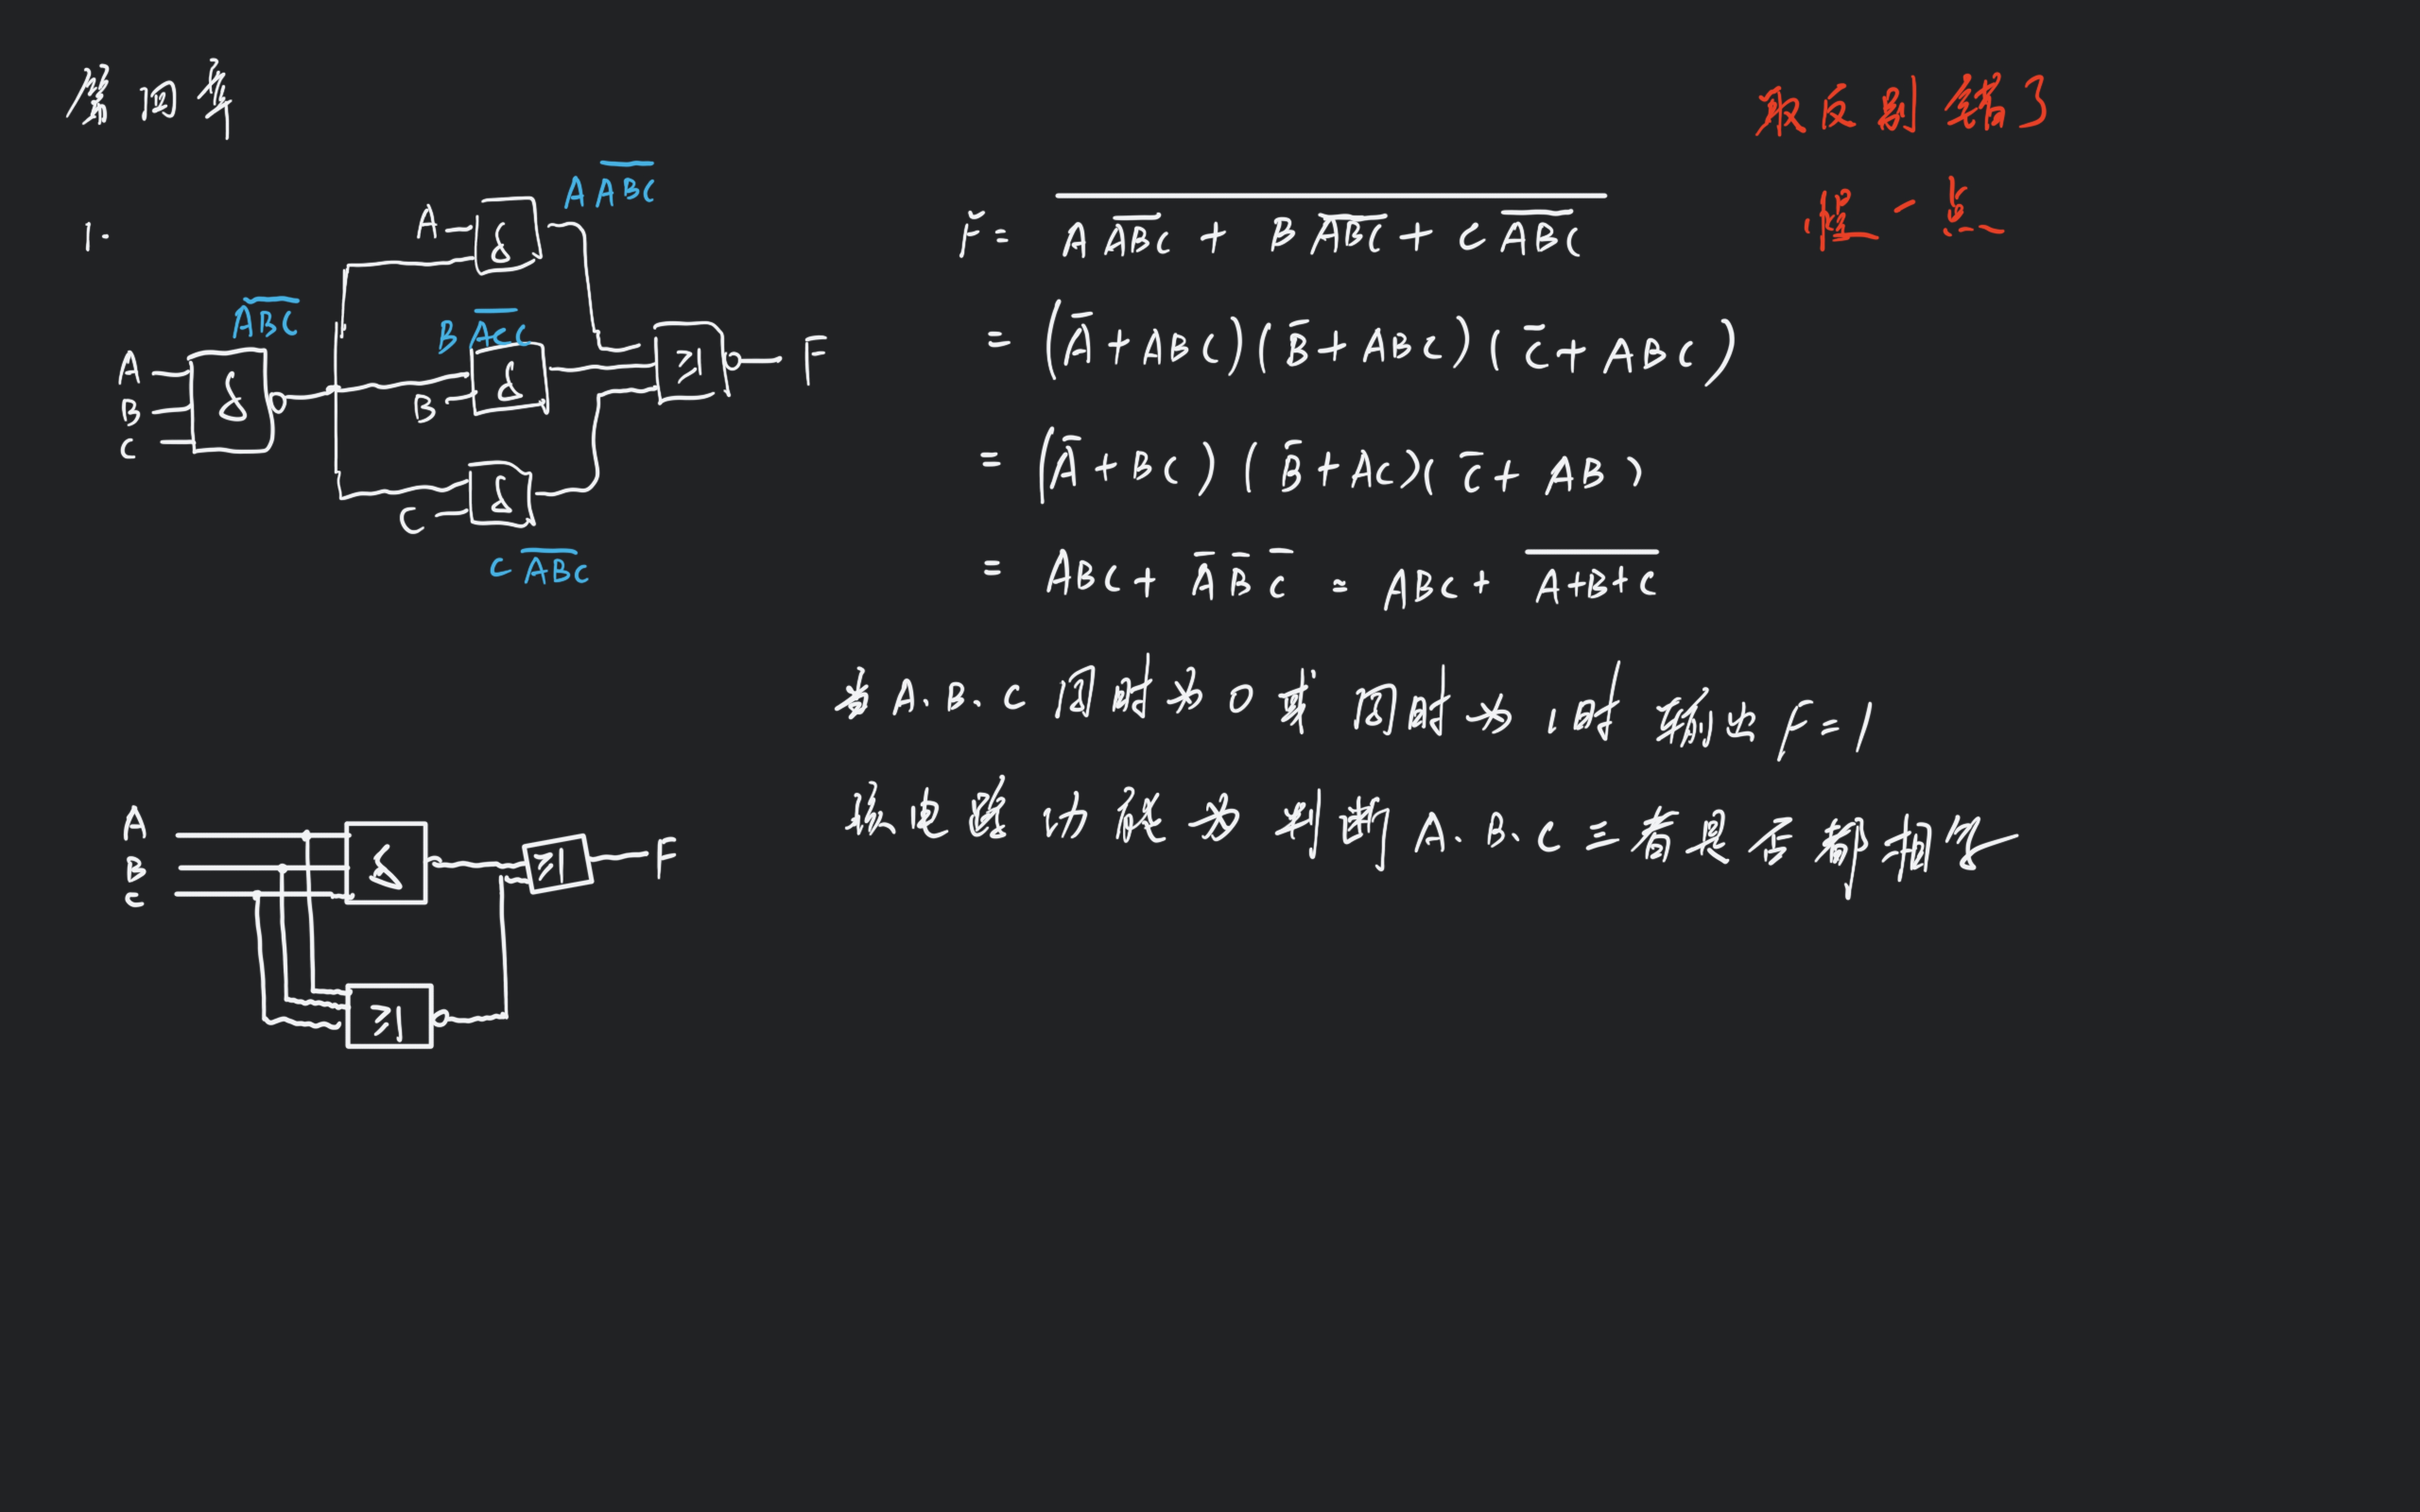 第四章
取反别错了
慢一点
1.
A & A\overline{ABC}
\overline{ABC}
B\overline{ACC}
A
B
C
&
B
&
≥1
F
C
&
C\overline{ABC}
F = \overline{A\overline{ABC} + B\overline{ABC} + C\overline{ABC}}
= (\bar{A}+ABC)(\bar{B}+ABC)(\bar{C}+ABC)
= (\bar{A}+BC)(\bar{B}+AC)(\bar{C}+AB)
= ABC + \bar{A}\bar{B}\bar{C} = ABC + \overline{A+B+C}
当A、B、C同时为0或同时为1时 输出F=1
该电路功能为判断A、B、C三者是否都相等
A
B
C
&
≥1
F
≥1